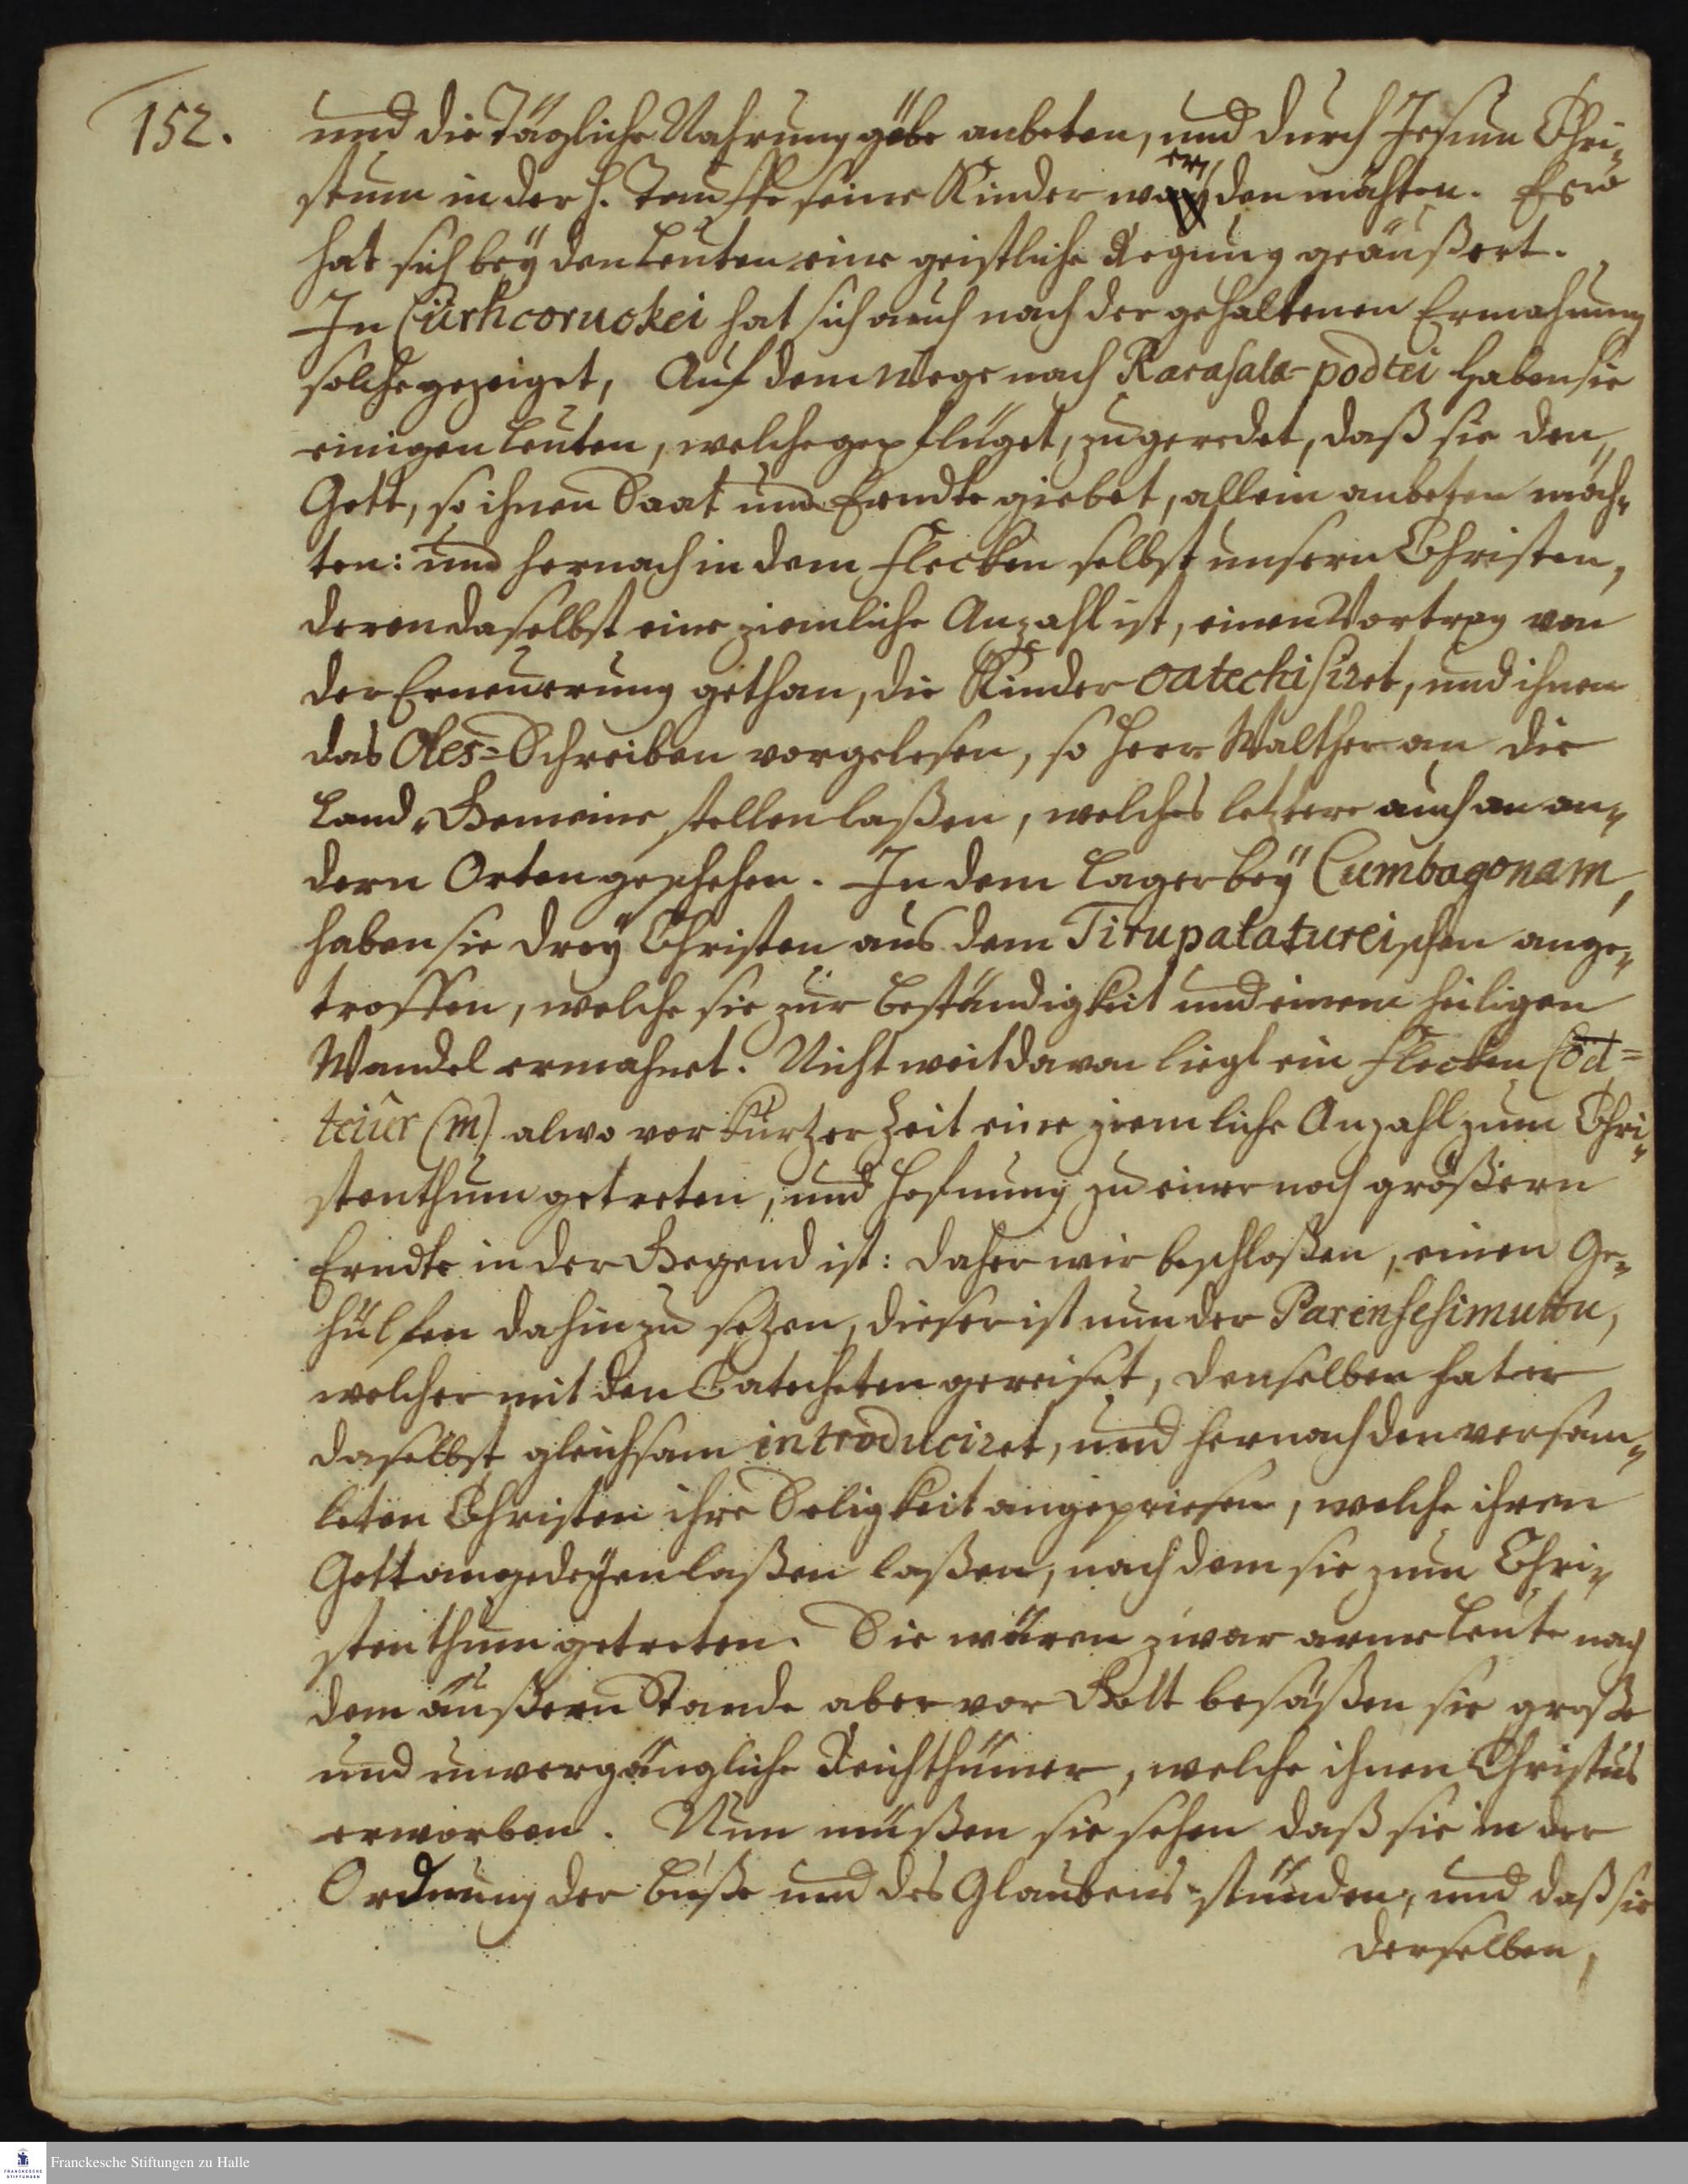 152.
und die Tägliche Nahrung gebe anbeten, und durch Jesum Chri„
stum in der H. Tauffe seine Kinder werden möchten. Es
hat sich beÿ den Leuten eine geistliche Regung geäußert.
In Curhcoruckei hat sich auch nach der gehaltenen Ermahnung
solche gezeiget, Auf dem Wege nach Rarasala-podtei haben sie
einigen Leuten, welche gepflüget, zugeredet, daß sie den
Gott, so ihnen Saat und Erndte giebet, allein anbeten möch„
ten: und hernach in dem Flecken selbst unsern Christen,
deren daselbst eine ziemliche Anzahl ist, einen Vortrag von
der Erneuerung gethan, die Kinder catechisiret, und ihnen
das Oles=Schreiben vorgelesen, so Herr Walther an die
Land„Gemeine stellen laßen, welches letzere auch an an„
dern Orten geschehen. In dem Lager beÿ Cumbagonam,
haben sie dreÿ Christen aus dem Tirupalatureischen ange„
troffen, welche sie zur Beständigkeit und einem heiligen
Wandel ermahnet. Nicht weit davon liegt ein Flecken Codt=
teiur (m) alwo vor kurtzer Zeit eine ziemliche Anzahl zum Chri„
stenthum getreten, und Hofnung zu einer noch größern
Erndte in der Gegend ist: daher wir beschloßen, einen Ge„
hülfen dahin zu sezen, dieser ist nun der Parensesimuttu,
welcher mit den Catecheten gereiset, denselben hat er
daselbst gleichsam introduciret, und hernach den versam„
leten Christen ihre Seligkeit angepriesen, welche ihnen
Gott angedeÿen laßen laßen, nach dem sie zum Chri„
stenthum getreten. Sie wären zwar arme Leute nach
dem äußern Stande aber vor Gott besäßen sie große
und unvergängliche Reichthümer, welche ihnen Christus
erworben. Nun müßen sie sehen daß sie in der
Ordnung der Buße und des Glaubens stünden, und daß sie
derselben,
Franckesche Stiftungen zu Halle